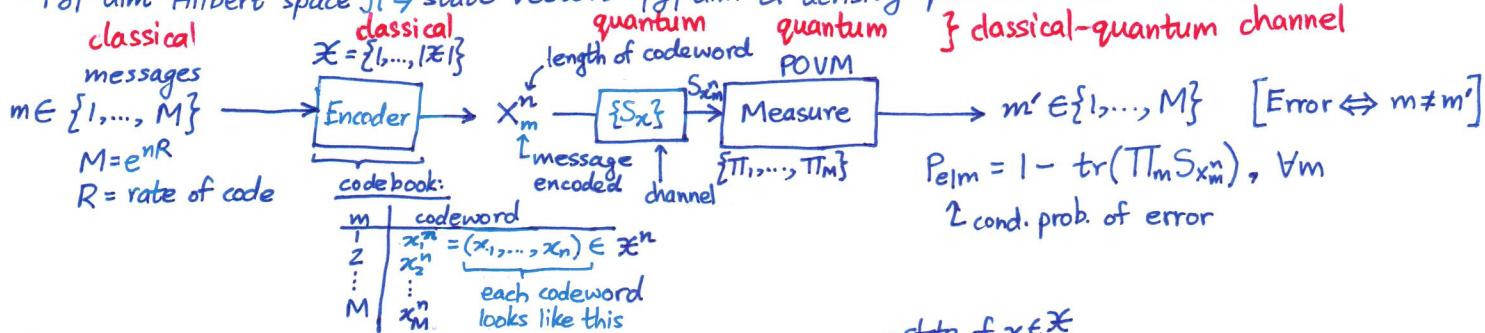 dim Hilbert space
classical classical quantum quantum } classical-quantum channel
messages 𝒳={1,...,|𝒳|} length of codeword POVM
m∈{1,...,M} Encoder Xₘⁿ {Sₓ} S_{xₘⁿ} Measure m'∈{1,...,M} [Error⇔ m≠m']
M=e^{nR} message encoded channel {Π₁,...,Π_M} P_{e|m} = 1 - tr(Πₘ S_{xₘⁿ}), ∀m
R = rate of code cond. prob. of error
codebook:
m codeword
1 x₁ⁿ = (x₁,...,xₙ) ∈ 𝒳ⁿ
2 x₂ⁿ
⋮ ⋮ each codeword
M x_Mⁿ looks like this
of x∈𝒳